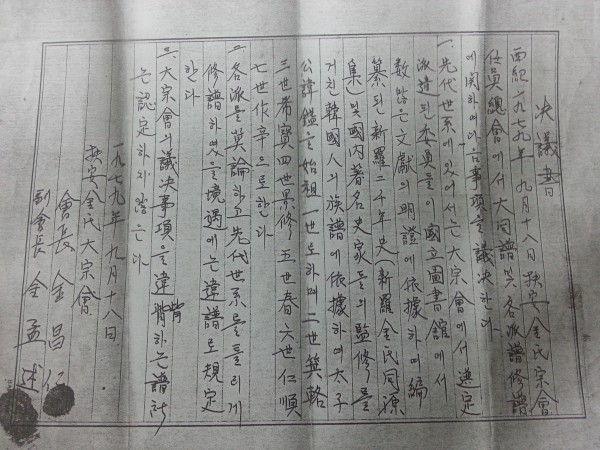 決議書
西紀一九七九年 九月十八日 扶安金氏宗會
任員總會에서 大同譜 및 各派譜修譜
에 関하여 아래事項을 議決한다
一. 先代世系에 있어서는 大宗會에서 選定
派遣된 委員들이 國立圖書館에서
数많은 文獻의 明證에 依據하여 編
纂된 新羅二千年史(新羅金氏同源
集) 및 國内著名史家들의 監修를
거치 韓國人의 族譜에 依據하여 太子
公諱鎰을 始祖 一世로하며 二世箕輅
三世希寶 四世景修 五世春 六世仁順
七世作辛으로한다
二. 各派을 莫論하고 先代世系를 틀리게
修譜하였을 境遇에는 違譜로 規定
한다
三. 大宗會의 議決事項을 違背하는 譜所
는 認定하지 않는다
一九七九年 九月十八日
扶安金氏大宗會
會長 金昌仁
副會長 金孟述